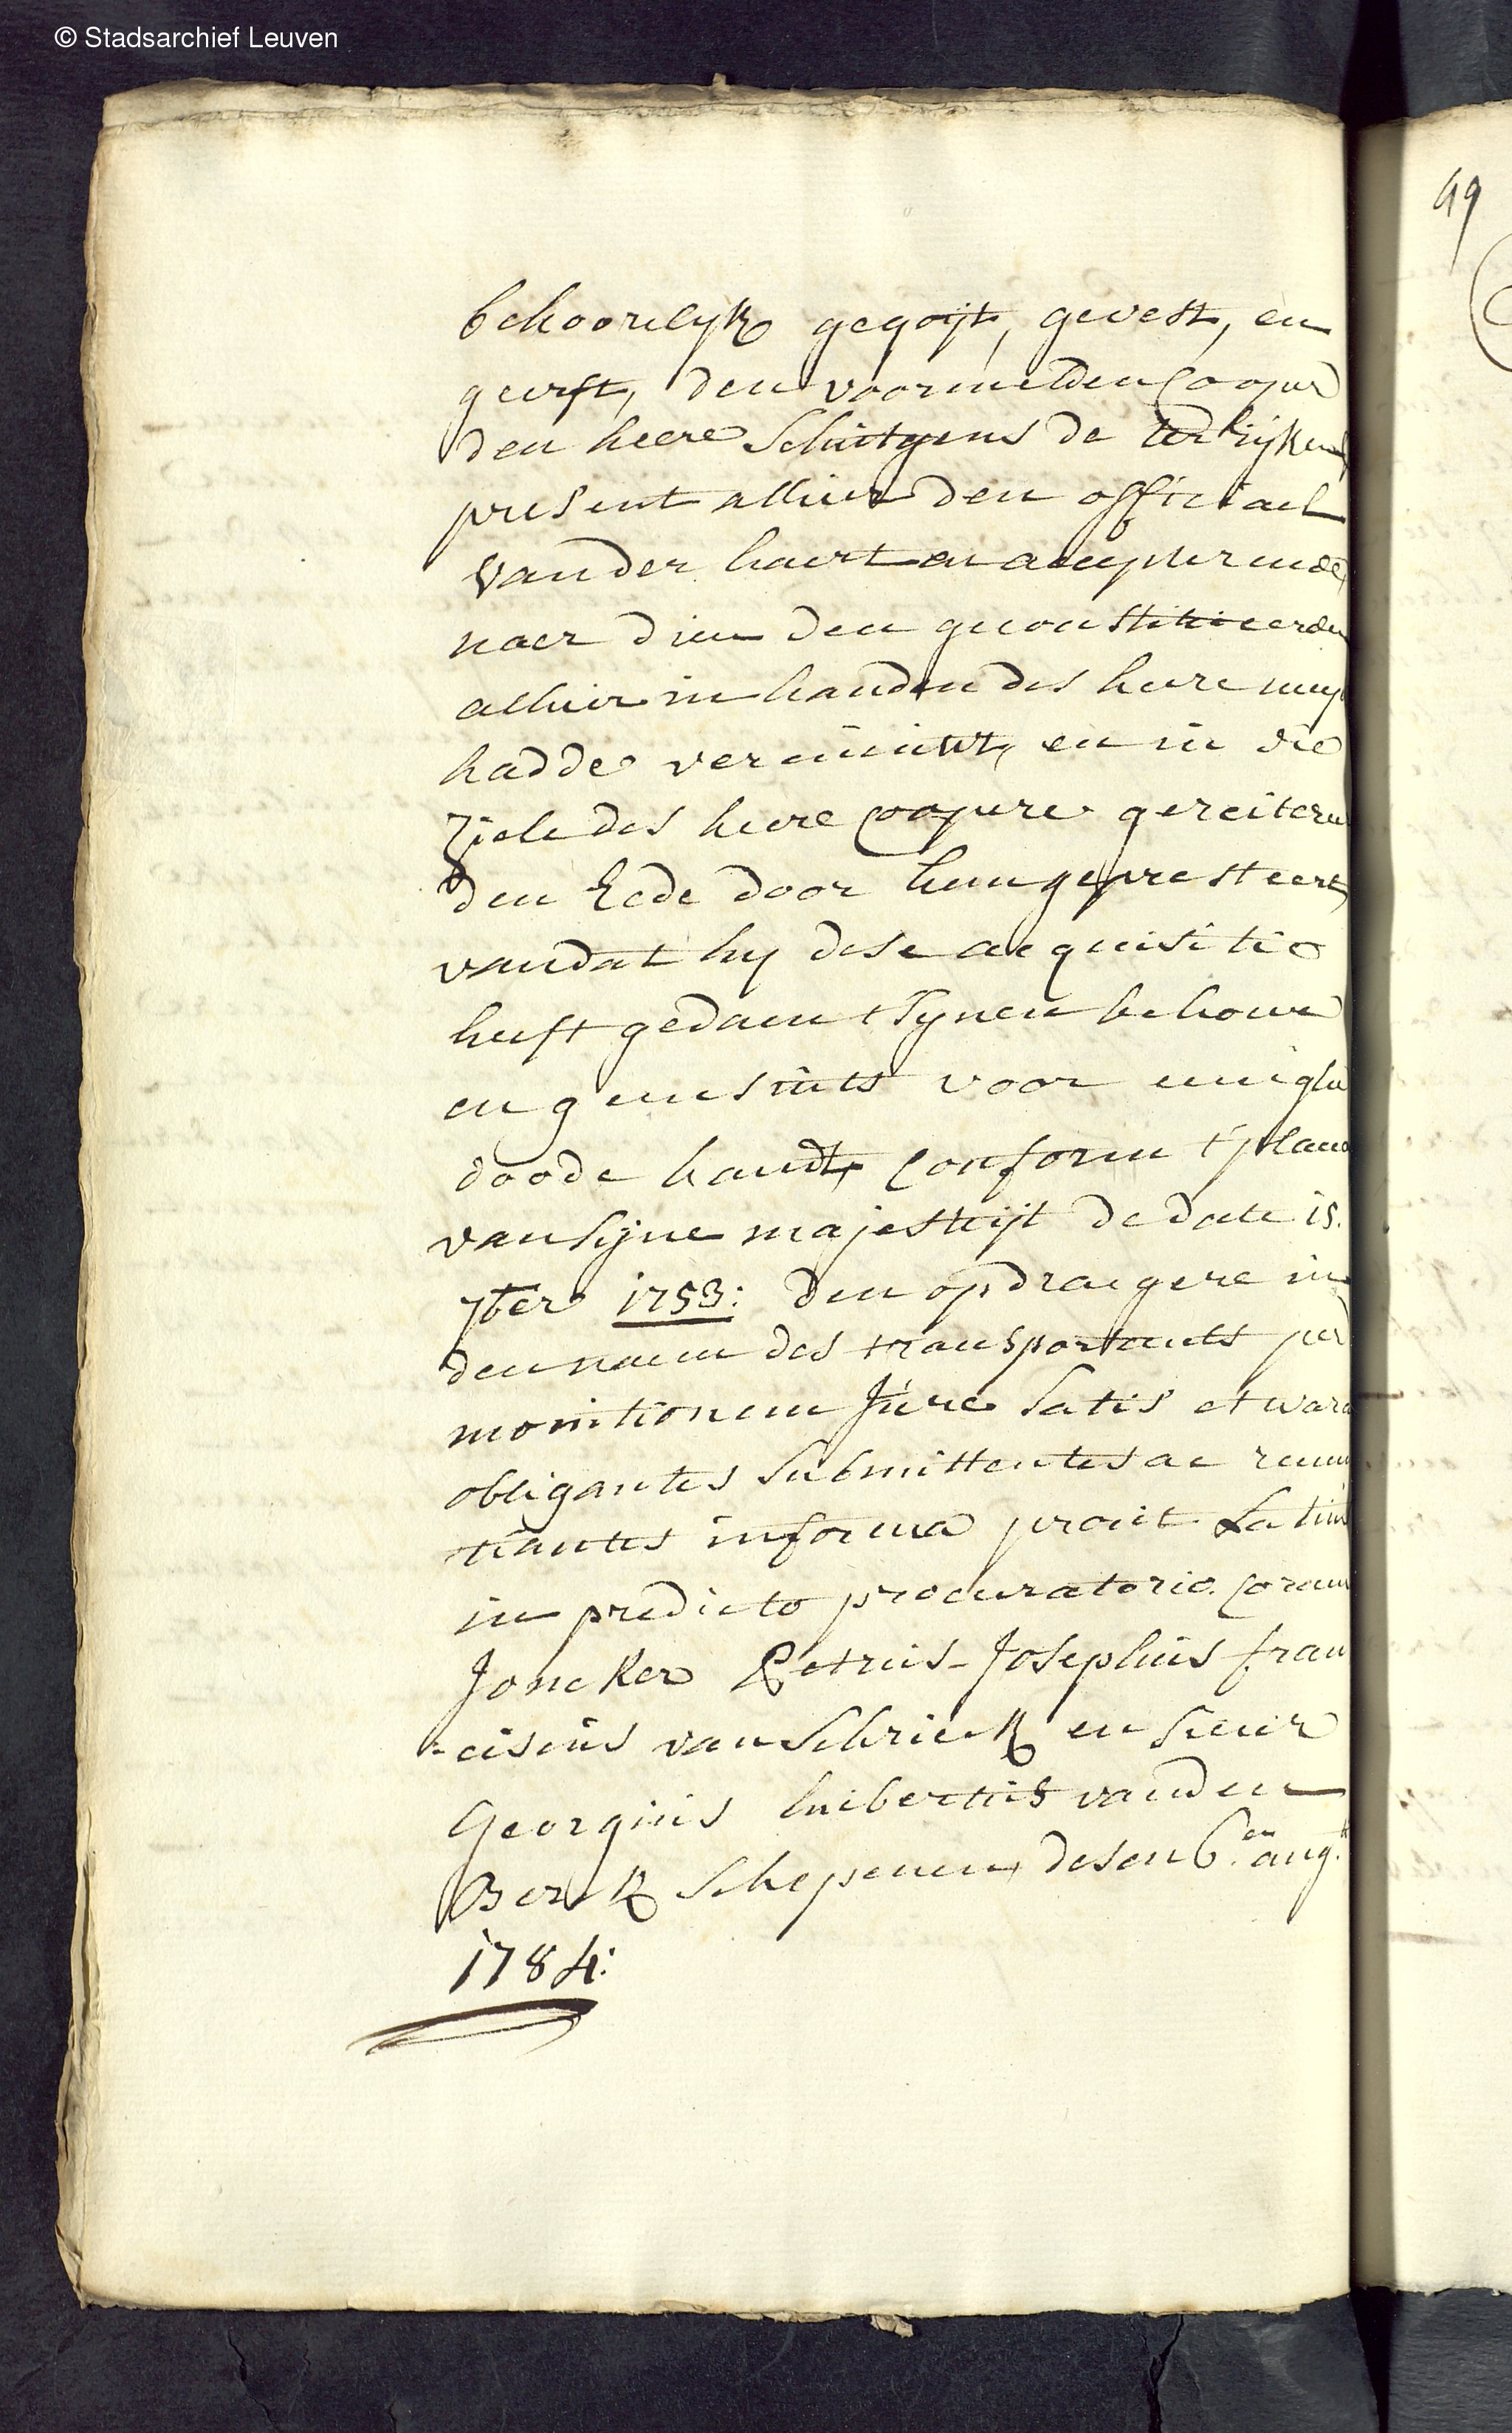 © Stadsarchief Leuven
49
behoorelyk gegoijt, gevest, en
geerft, den voormelden cooper
den heere Schutgens de
present alhier den officiael
vander haert en accepterende
naer dien den geconstitueerden
alhier in handen des heere meye
hadde vernieuwt, en in die
ziele des heere coopere gereitere
den Eede door hem gepresteert
van dat hy dese acquisitie
heeft gedaen t'synen behoeve
en geensints voor eenighe
doode handt, conform t'placca
van syne majesteijt de date 15.
7ber 1753: den opdraegere in
den naem des transportants per
monitionem Jure satis et wara
obligantes submittentes ac renun
tiantes in forma prout Latius
in predicto procuratorio. coram
Joncker Petrus-Josephus fran
-ciscus van Schrieck en sieur
Georgius hubertus vanden
Berck schepenen, desen 6.en aug.ti
1784: